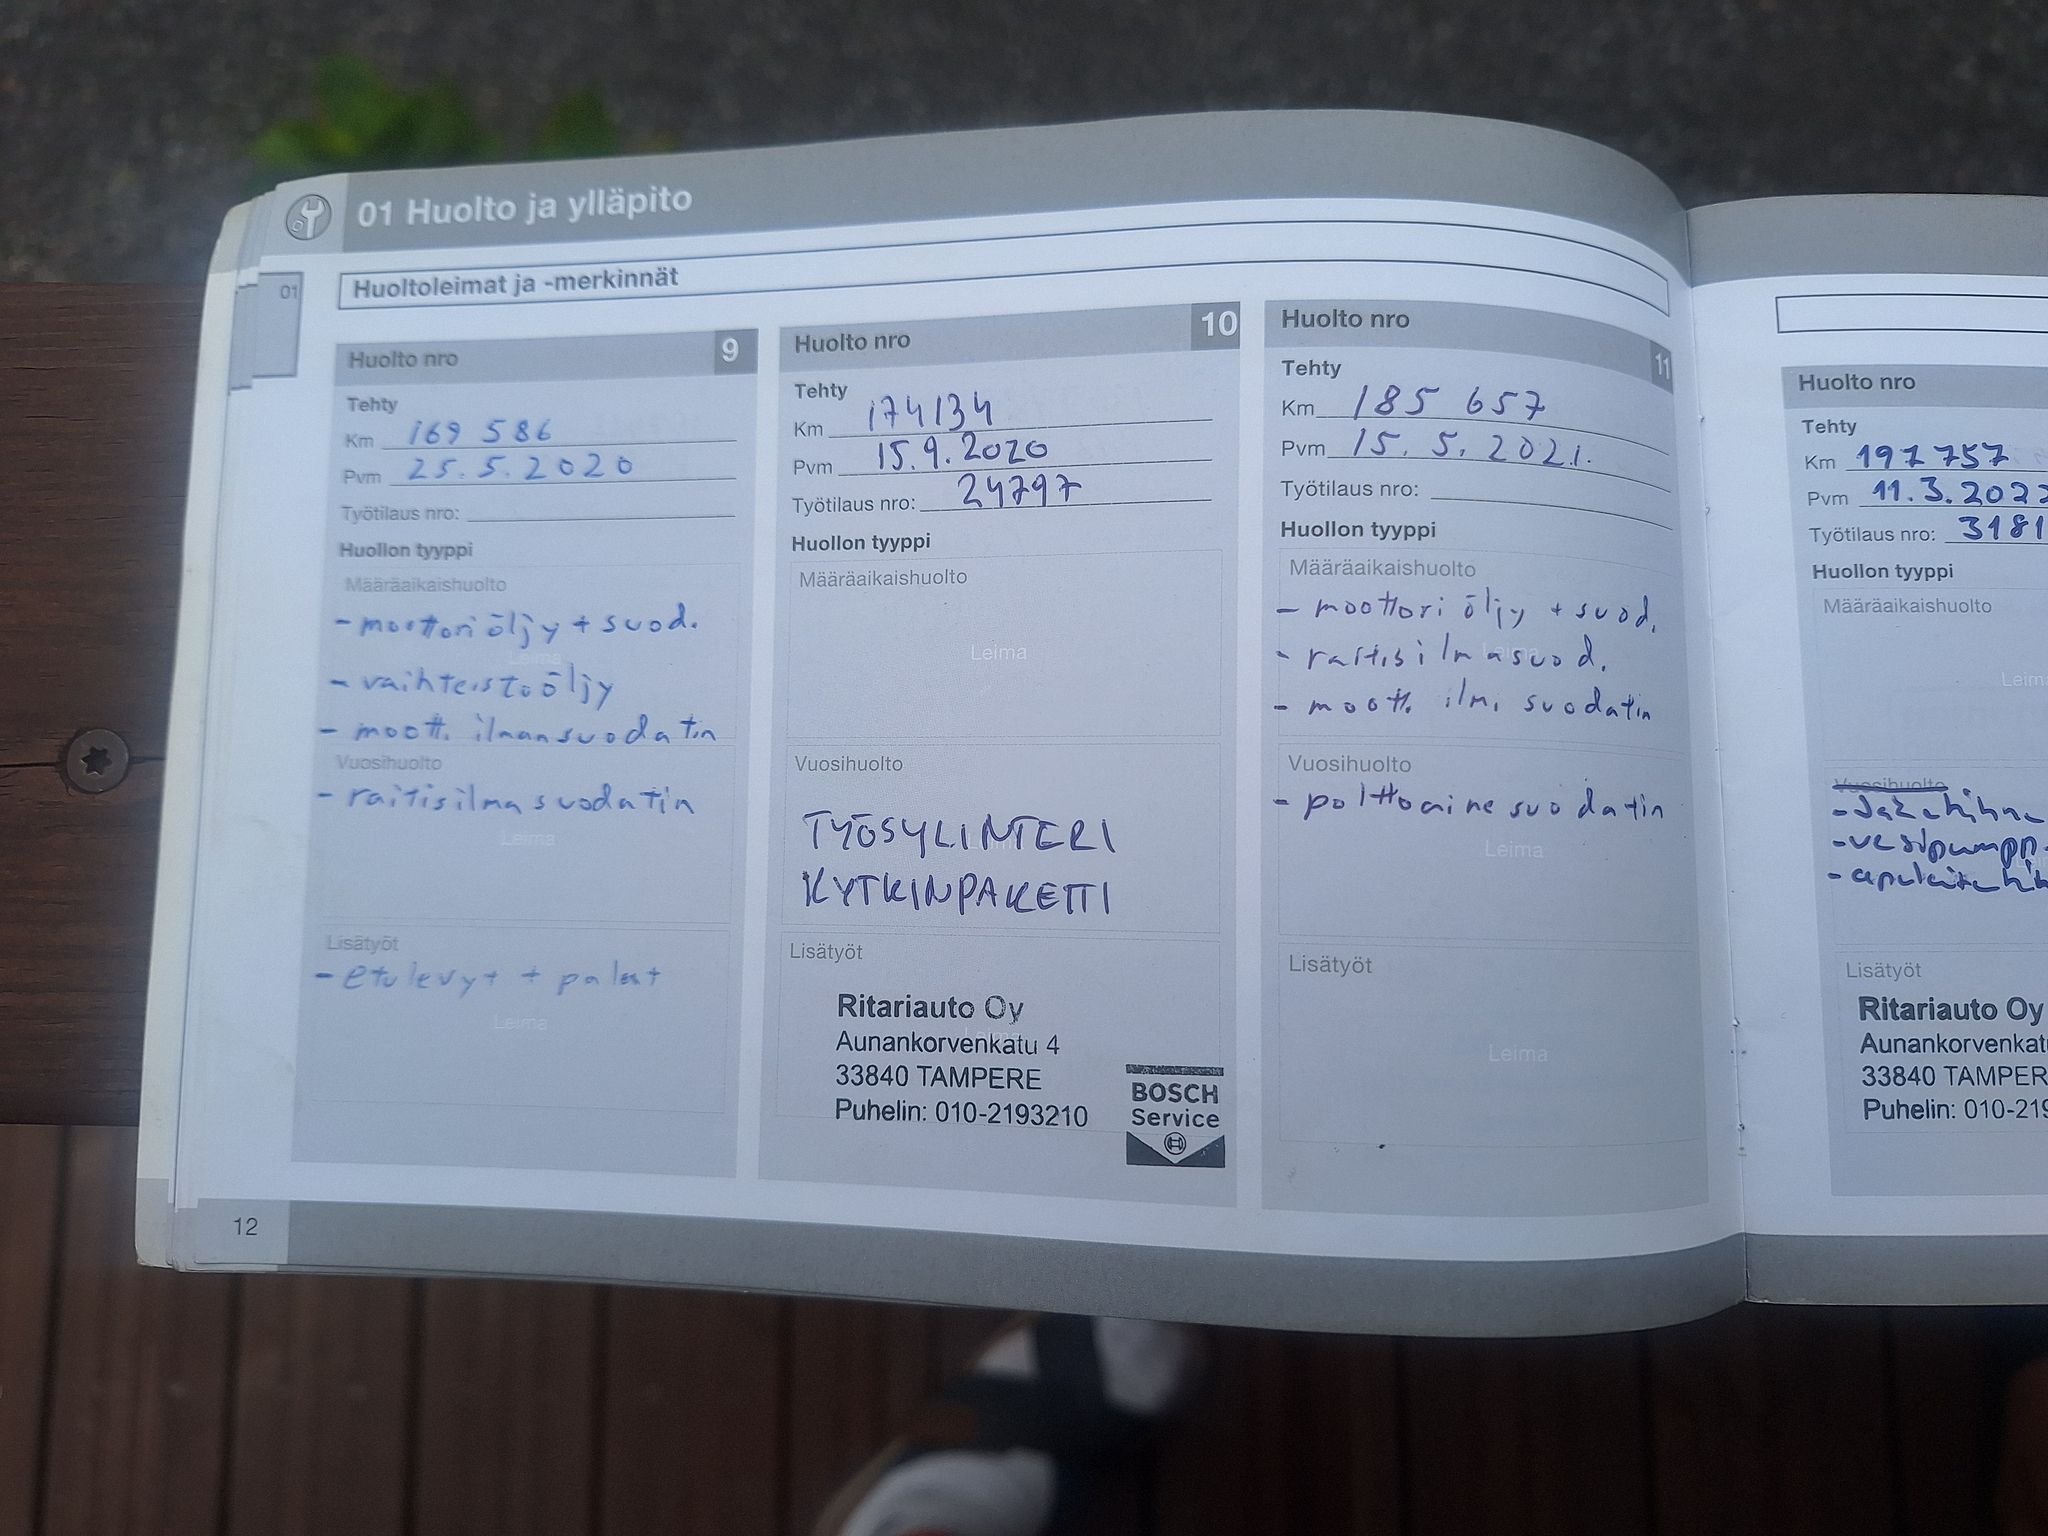 01 Huolto ja ylläpito
01
Huoltoleimat ja -merkinnät
Huolto nro 9
Tehty
Km 169 586
Pvm 25.5.2020
Työtilaus nro:
Huollon tyyppi
Määräaikaishuolto
- moottoriöljy + suod.
Leima
- vaihteistoöljy
- moott. ilmansuodatin
Vuosihuolto
- raitisilmasuodatin
Leima
Lisätyöt
- etulevyt + palat
Leima
12
Huolto nro 10
Tehty
Km 174134
Pvm 15.9.2020
Työtilaus nro: 24797
Huollon tyyppi
Määräaikaishuolto
Leima
Vuosihuolto
TYÖSYLINTERI
Leima
KYTKINPAKETTI
Lisätyöt
Leima
Ritariauto Oy
Aunankorvenkatu 4
33840 TAMPERE
Puhelin: 010-2193210
BOSCH
Service
Huolto nro 11
Tehty
Km 185 657
Pvm 15.5.2021.
Työtilaus nro:
Huollon tyyppi
Määräaikaishuolto
- moottori öljy + suod.
Leima
- raitisilmasuod.
- moott. ilm. suodatin
Vuosihuolto
- polttoainesuodatin
Leima
Lisätyöt
Leima
Huolto nro
Tehty
Km 197757
Pvm 11.3.2022
Työtilaus nro: 3181
Huollon tyyppi
Määräaikaishuolto
Leim
Vuosihuolto
- vesipumpp
Lisätyöt
Ritariauto Oy
Aunankorvenkatu
33840 TAMPER
Puhelin: 010-219